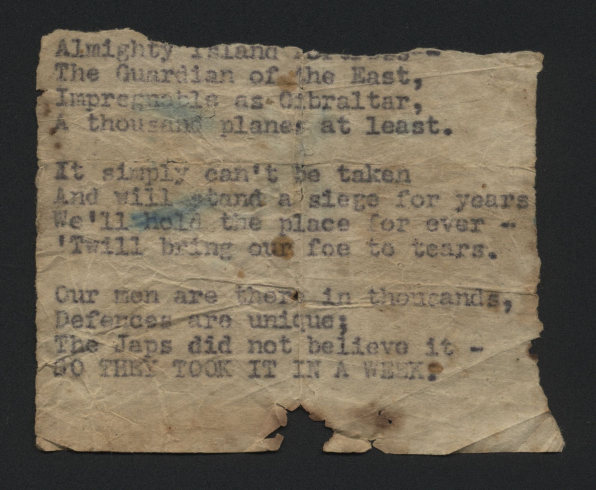 Almighty Island Fortress -
The Guardian of the East,
Impregnable as Gibraltar,
A thousand planes at least.

It simply can't be taken
And will stand a siege for years
We'll hold the place for ever -
'Twill bring our foe to tears.

Our men are there in thousands,
Defences are unique;
The Japs did not believe it -
SO THEY TOOK IT IN A WEEK.